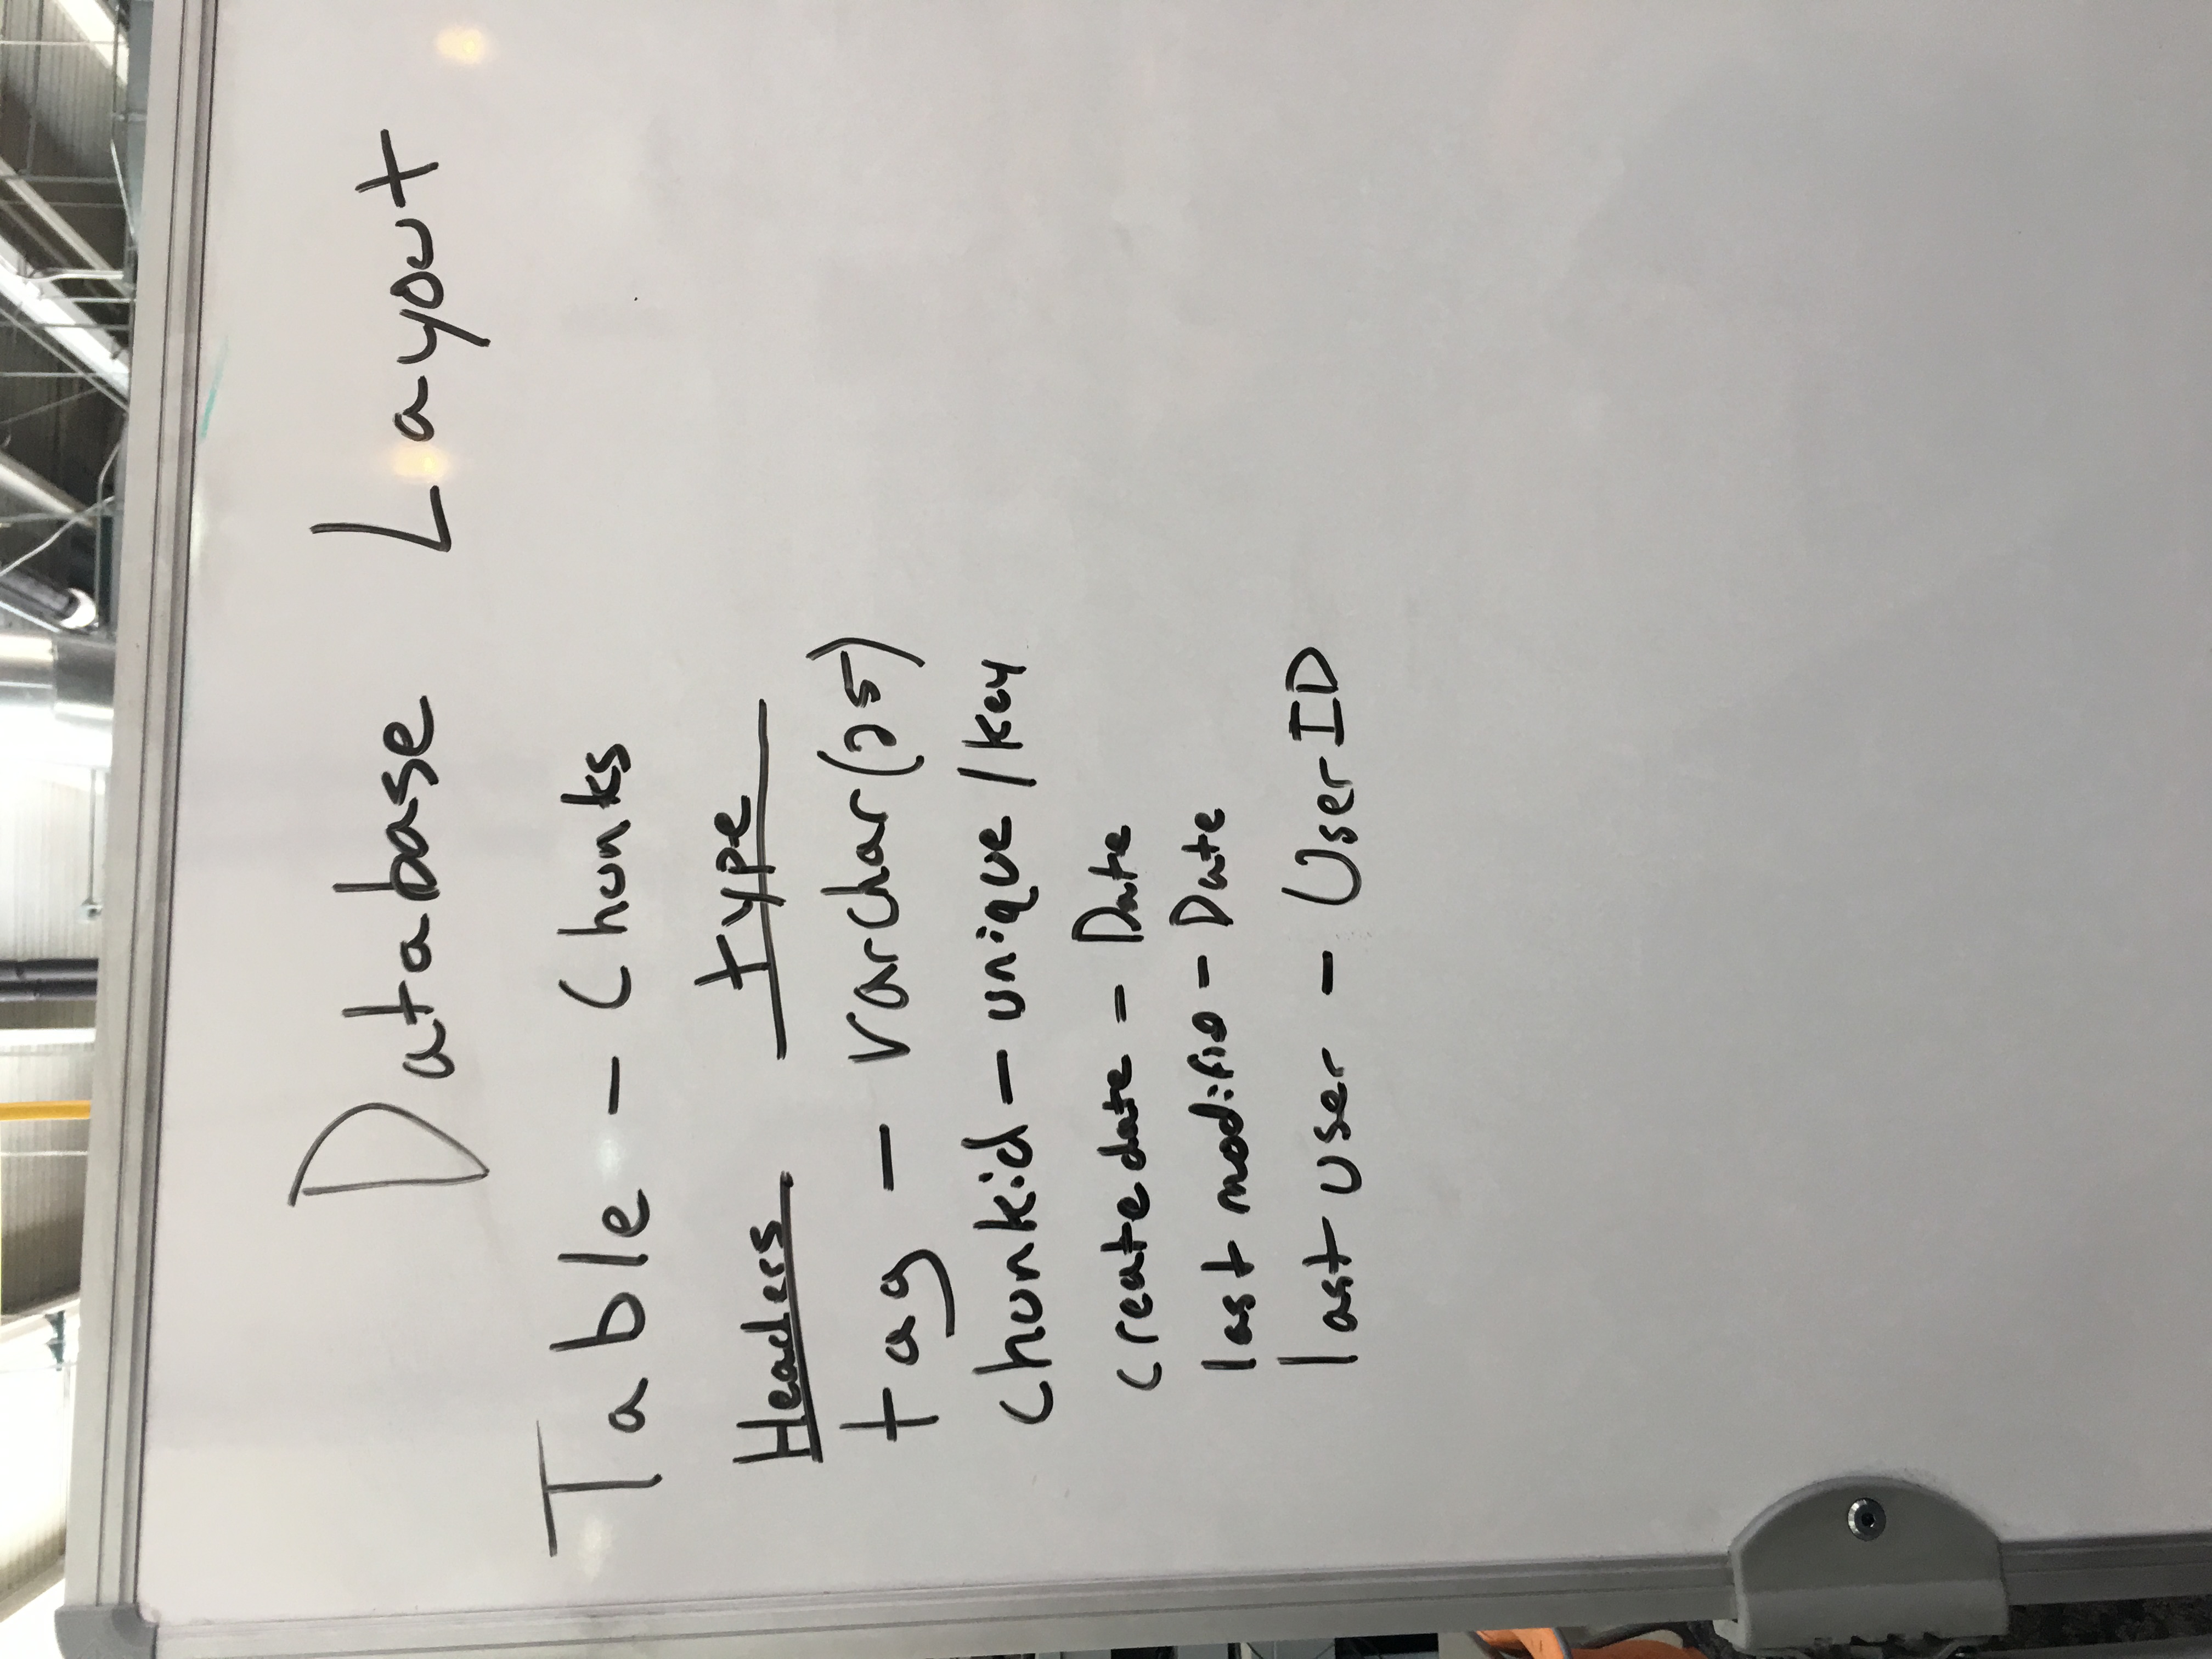 Database Layout
Table - Chunks
Headers type
tag - varchar(25)
chunkid - unique / key
createdate - Date
last modifie - Date
last user - UserID